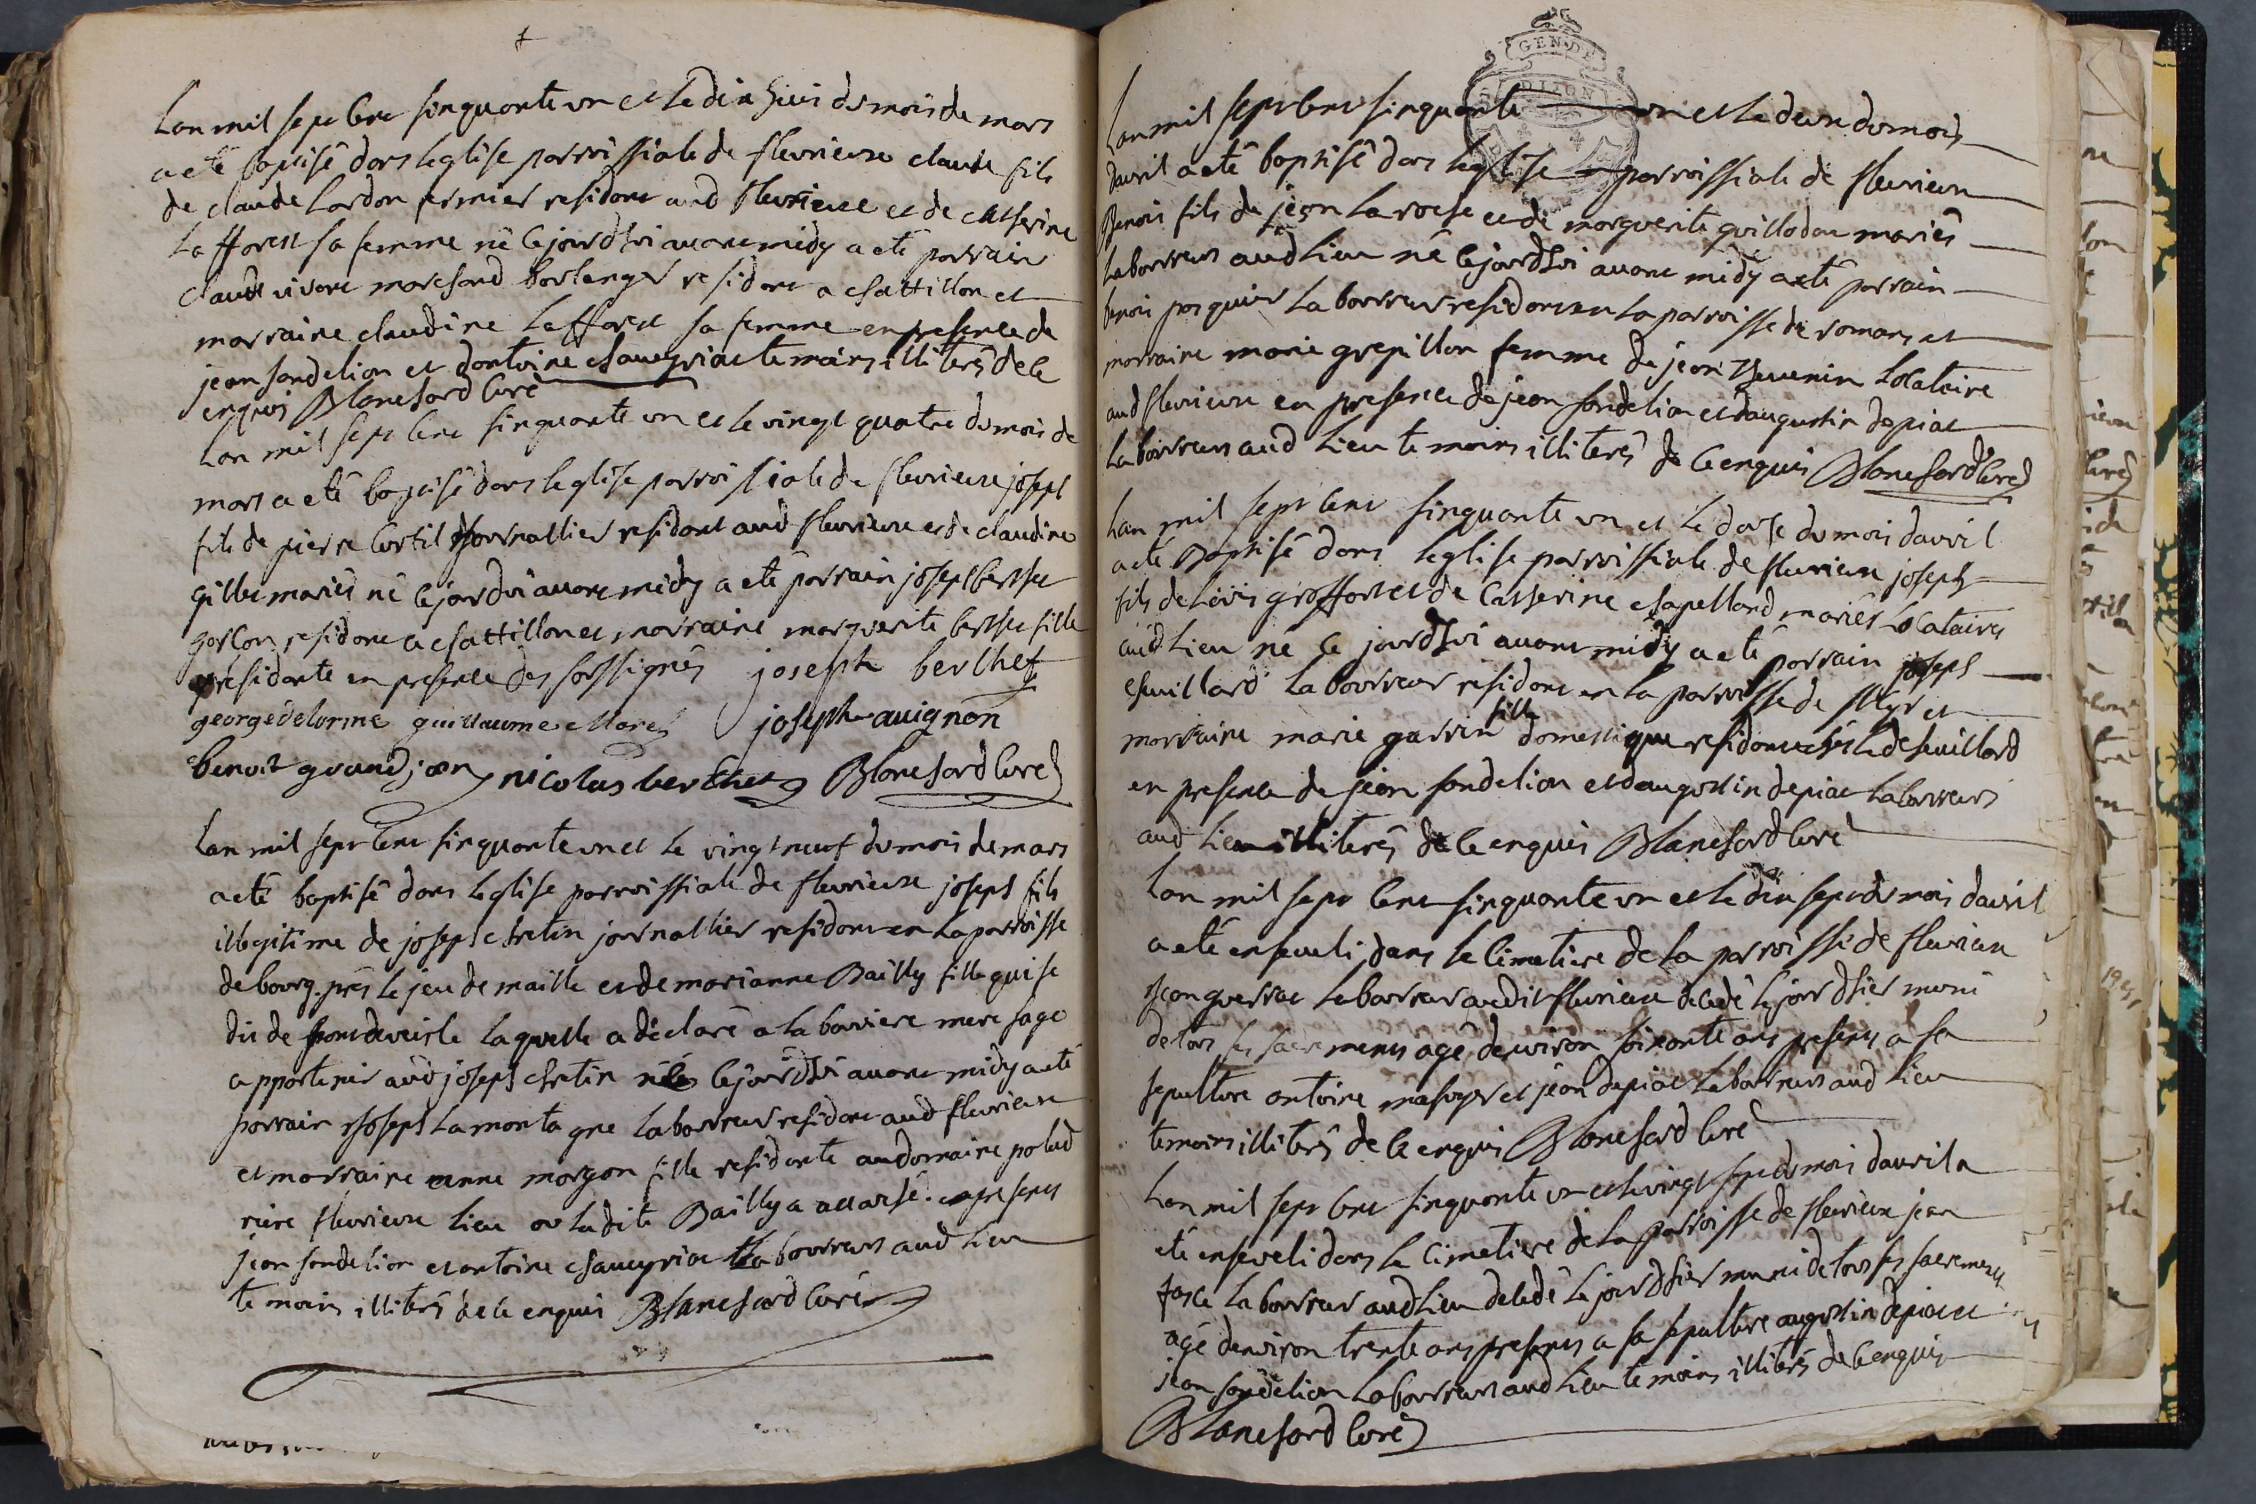 Lan mil sept cent sinquante un et le dix huit du mois de mars
a eté baptisé dans leglise parroissiale de fleurieux claude fils
de claude Lardon fermier residant aud fleurieux et de catherine
Lafforest sa femme né cejourdhui avant midy a eté parrain
claude vivant marchand boulenger residant a chattillon et
marraine claudine Lafforest sa femme en presence de
jean fondelion et dantoine chaueyriat temoins illiterés de ce
enquis Blanchard curé
Lan mil sept cent sinquante un et le vingt quatre du mois de
mars a eté baptisé dans leglise parroissiale de fleurieux joseph
fils de pierre Curtil journallier residant aud fleurieux et de claudine
gillet mariés né cejourdhui avant midy a eté parrain joseph berthet
garcon residant a chattillon et marraine marguerite berthet fille
residante en presence des soussignés joseph berthet
george delorme guillaume Morel joseph avignon
benoit grandjean nicolas berthet Blanchard curé
Lan mil sept cent sinquante un et le vingt neuf du mois de mars
a eté baptisé dans leglise parroissiale de fleurieux joseph fils
illegitime de joseph chretin journallier residant en la parroisse
de bourg près le jeu de maille et de marianne Bailly fille qui se
dit de pontdeveisle laquelle a déclaré a la bouviere mere sage
appartenir aud joseph chretin né cejourdhui avant midy a eté
parrain joseph Lamontagne laboureur residant aud fleurieux
et marraine anne morgon fille residante au domaine
riere fleurieux lieu ou ladite Bailly a accouché presents
jean fondelion et antoine chaueyriat laboureurs aud lieu
temoins illiterés de ce enquis Blanchard curé
GEN DE
DIJON
Lan mil sept cent sinquante un et le deux du mois
davril a eté baptisé dans leglise parroissiale de fleurieux
Benoit fils de jean Laroche et de marguerite guillodat mariés
laboureurs aud lieu né cejourdhui avant midy a eté parrain
benoit pasquier laboureur residant en la parroisse de romans et
marraine marie grepillon femme de jean Thevenin locataire
aud fleurieux en presence de jean fondelion et daugustin depiat
laboureurs aud lieu temoins illiterés de ce enquis Blanchard curé
Lan mil sept cent sinquante un et le doze du mois davril
a eté Baptisé dans leglise parroissiale de fleurieux joseph
fils de Louis groffort et de Catherine chapelland mariés locataires
aud lieu né ce jourdhui avant midy a eté parrain joseph
chuillard laboureur residant en la parroisse de st cyr et
marraine marie guerrin fille domestique residante chés led chuillard
en presence de jean fondelion et daugustin depiat laboureurs
aud lieu illiterés de ce enquis Blanchard curé
Lan mil sept cent sinquante un et le dix sept du mois davril
a eté enseveli dans le cimetiere de la parroisse de fleurieux
jean guerret laboureur audit fleurieux decedé le jourdhier muni
de tous ses sacrements agé denviron soixante ans presents a sa
sepulture antoine mesoyer et jean depiat laboureurs aud lieu
temoins illiterés de ce enquis Blanchard curé
Lan mil sept cent sinquante un et le vingt sept du mois davril a
eté enseveli dans le cimetiere de la parroisse de fleurieux jean
laboureur aud lieu decedé le jourdhier muni de tous ses sacrements
agé denviron trente ans presents a sa sepulture augustin depiat et
jean fondelion laboureurs aud lieu temoins illiterés de ce enquis
Blanchard curé